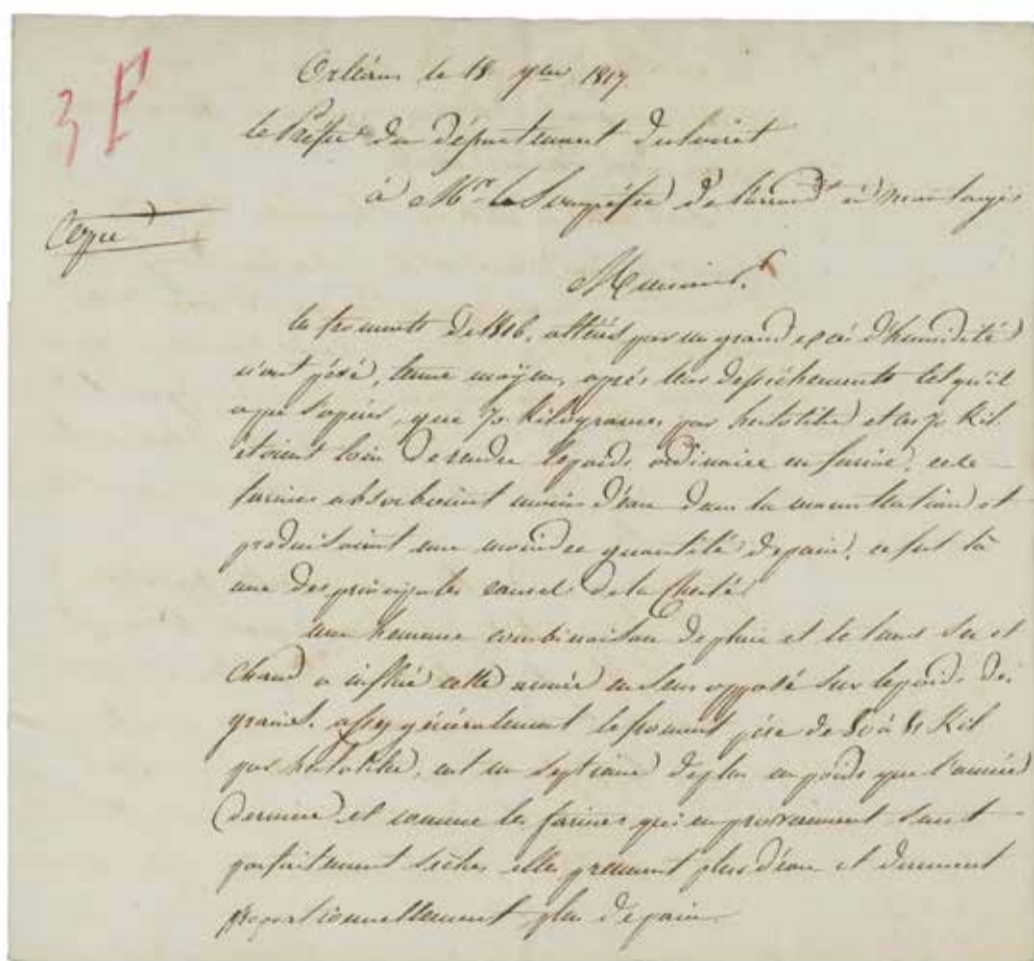 3 F
Orléans le 18 7bre 1817.
le Préfet du département du Loiret
à Mr le Souspréfet de l'arrondt de montargis
Copie
Monsieur.
les froments de 1816, altérés par un grand excès d'humidité
n'ont pésé, terme moyen, après leur dessèchements tel qu'il
a pu s'opérer, que 70 Kilogrames par hectolitre et ces 70 Kil.
étoient loin de rendre le poids ordinaire en farine. ces
farines absorboient moins d'eau dans la manutention et
produisoient une moindre quantité de pain. ce fut là
une des principales causes de la cherté.
une heureuse combinaison de pluie et de tems sec et
chaud a influé cette année en sens opposé sur le poids des
grains. assez généralement le froment pèse de 80 à 81 Kil
par hectolitre, est un septième de plus en poids que l'année
dernière et comme les farines qui en proviennent sont
parfaitement sèches elles prennent plus d'eau et donnent
proportionnellement plus de pain.